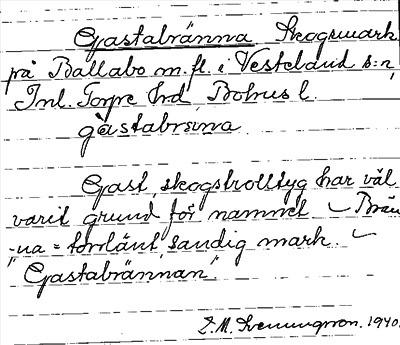 Gastabränna Skogsmark
på Ballabo m.fl. i Vesteland s:n,
Inl. Torpe hrd, Bohus l.
gàstabræna.
Gast, skogstrolltyg har väl
varit grund för namnet – Brän-
na = torrlänt, sandig mark. –
"Gastabrännan".
S.M. Svenungson. 1940.